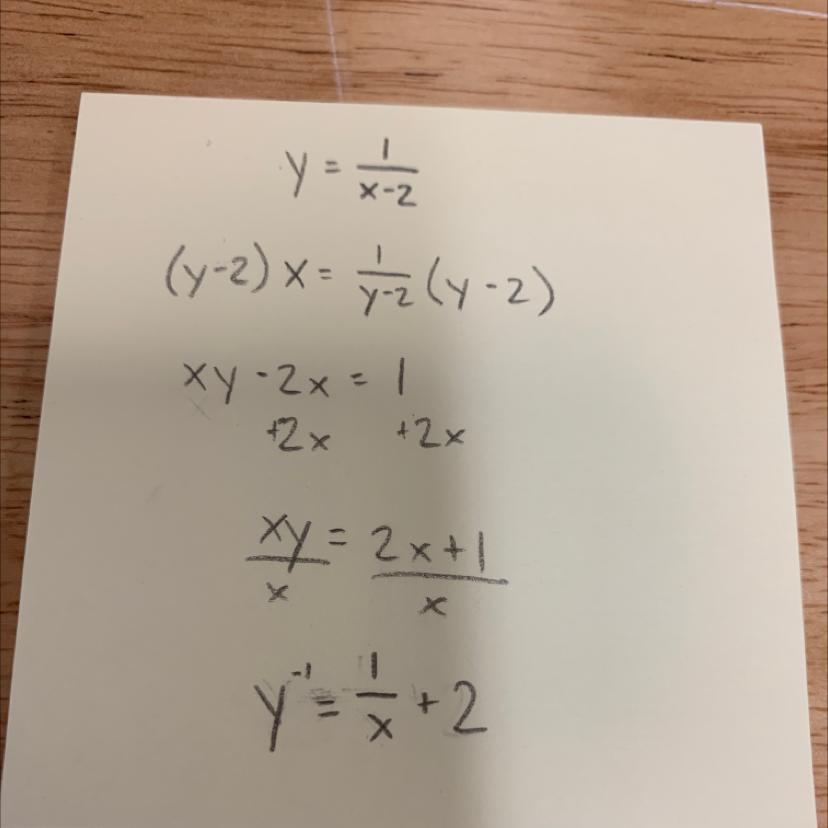 y = 1/(x-2)
(y-2) x = 1/(y-2) (y-2)
xy - 2x = 1
+2x +2x
xy/x = (2x+1)/x
y⁻¹ = 1/x + 2